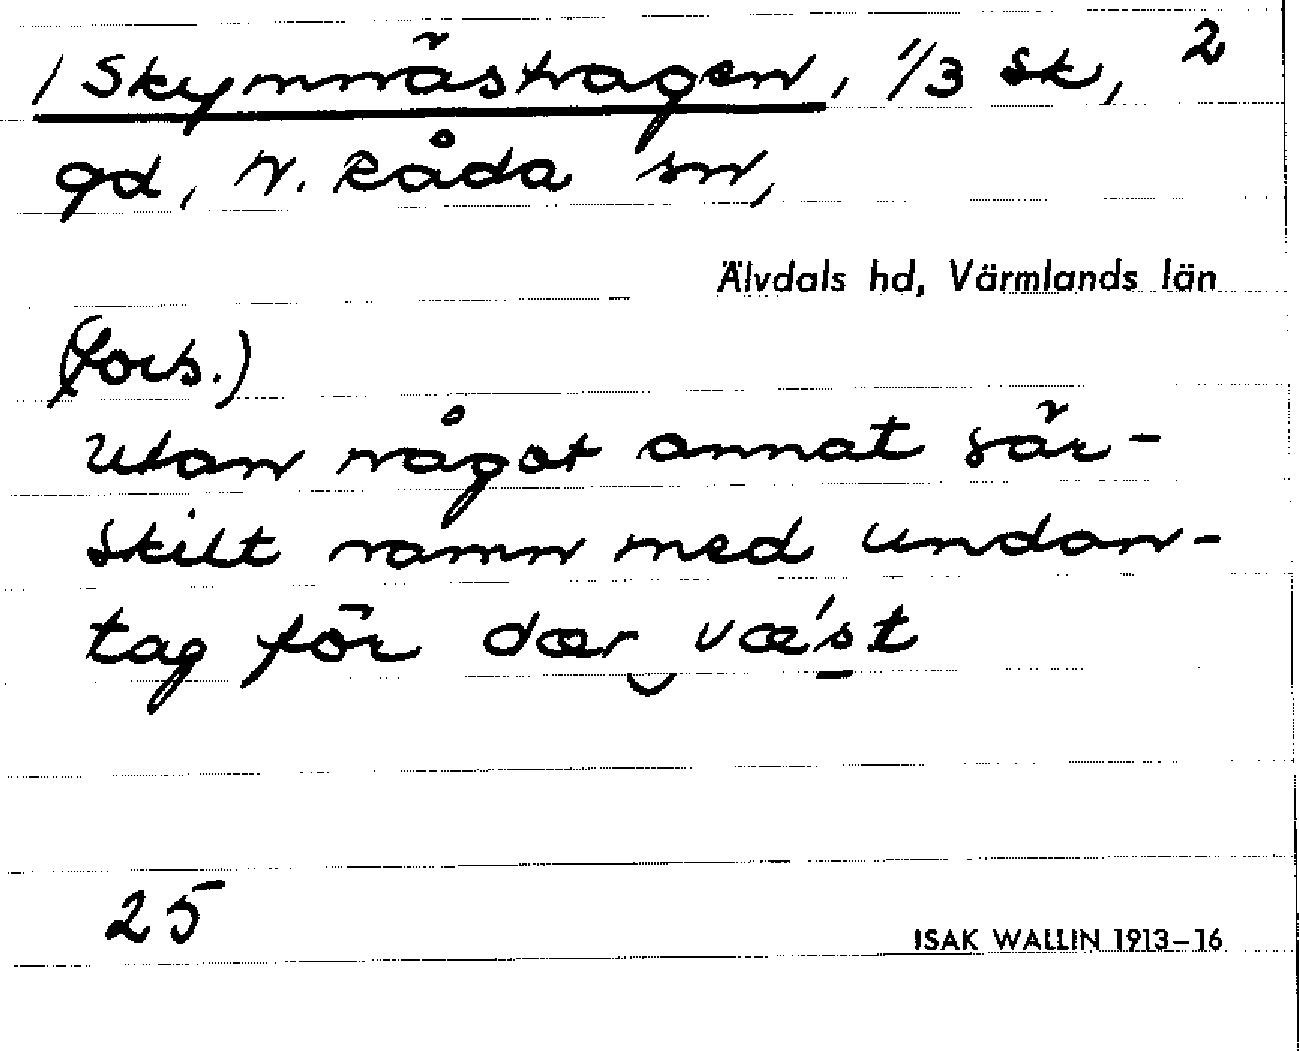 / Skymnäshagen, 1/3 sk, 2
gd, N. Råda sn,
Älvdals hd, Värmlands län
(forts.)
Utan något annat sär-
skilt namn med undan-
tag för dær vǽst
25
ISAK WALLIN 1913-16